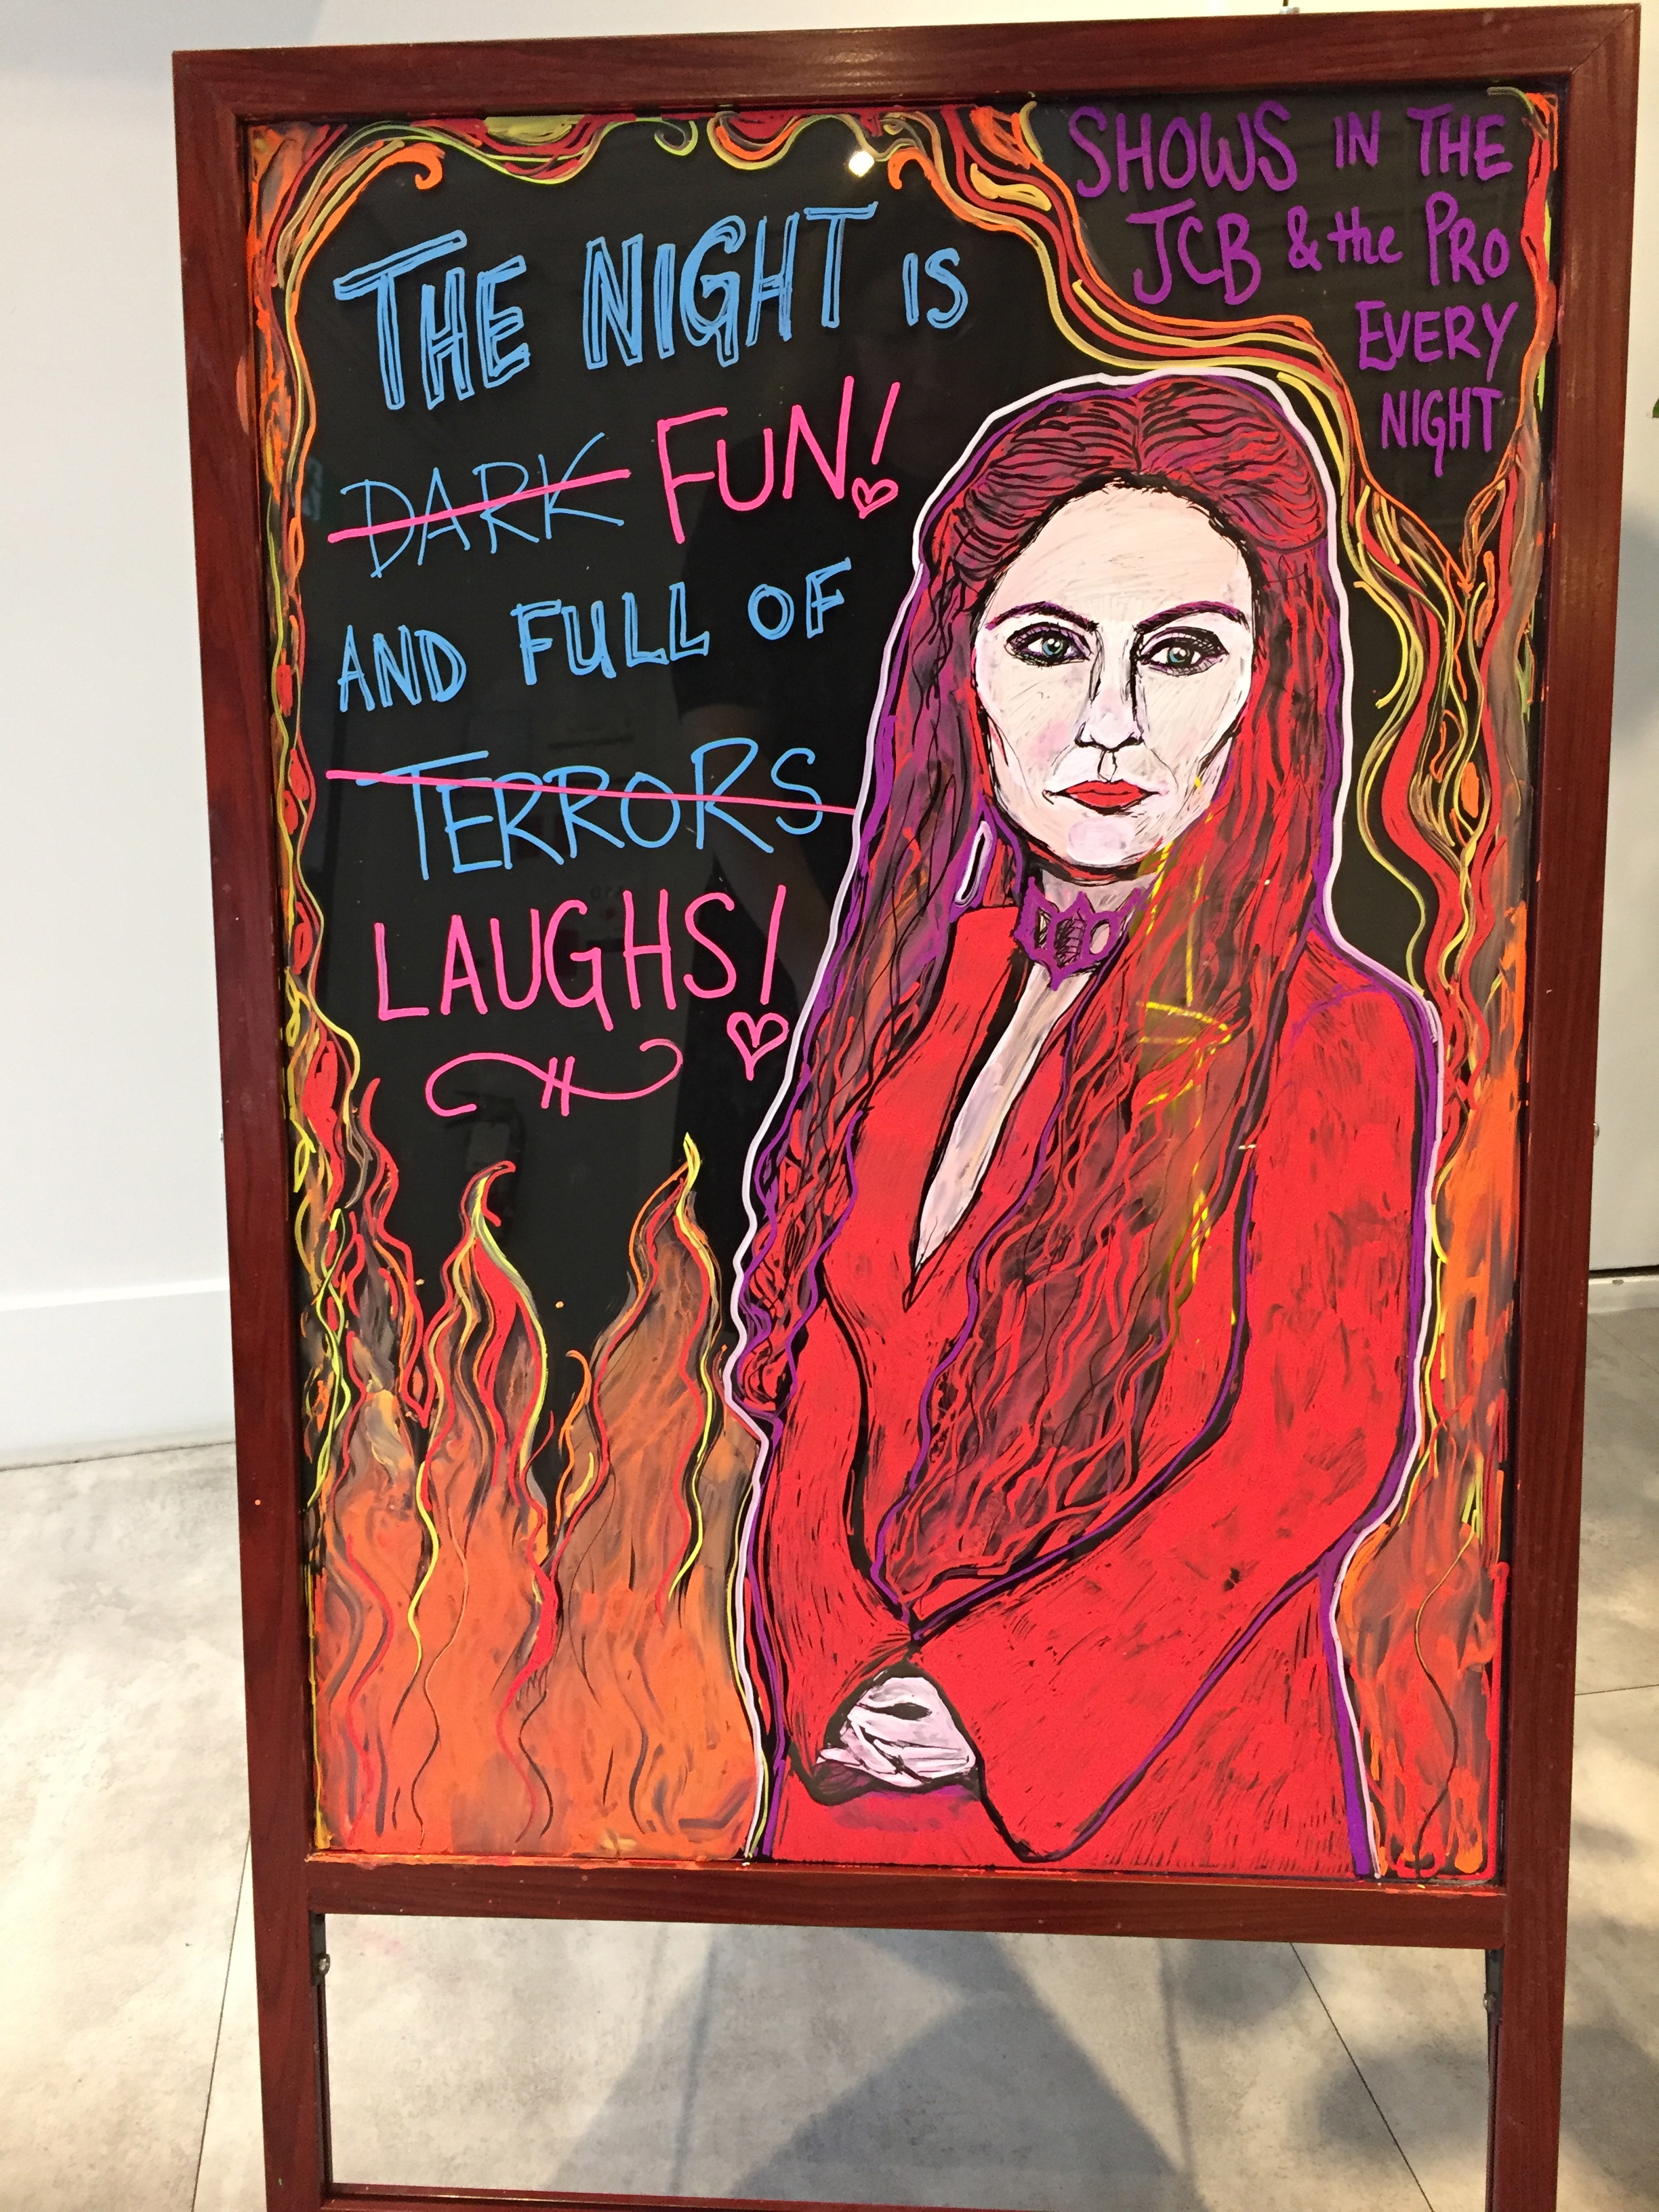 THE NIGHT IS
DARK FUN!
AND FULL OF
TERRORS
LAUGHS!
SHOWS IN THE
JCB & the PRO
EVERY
NIGHT